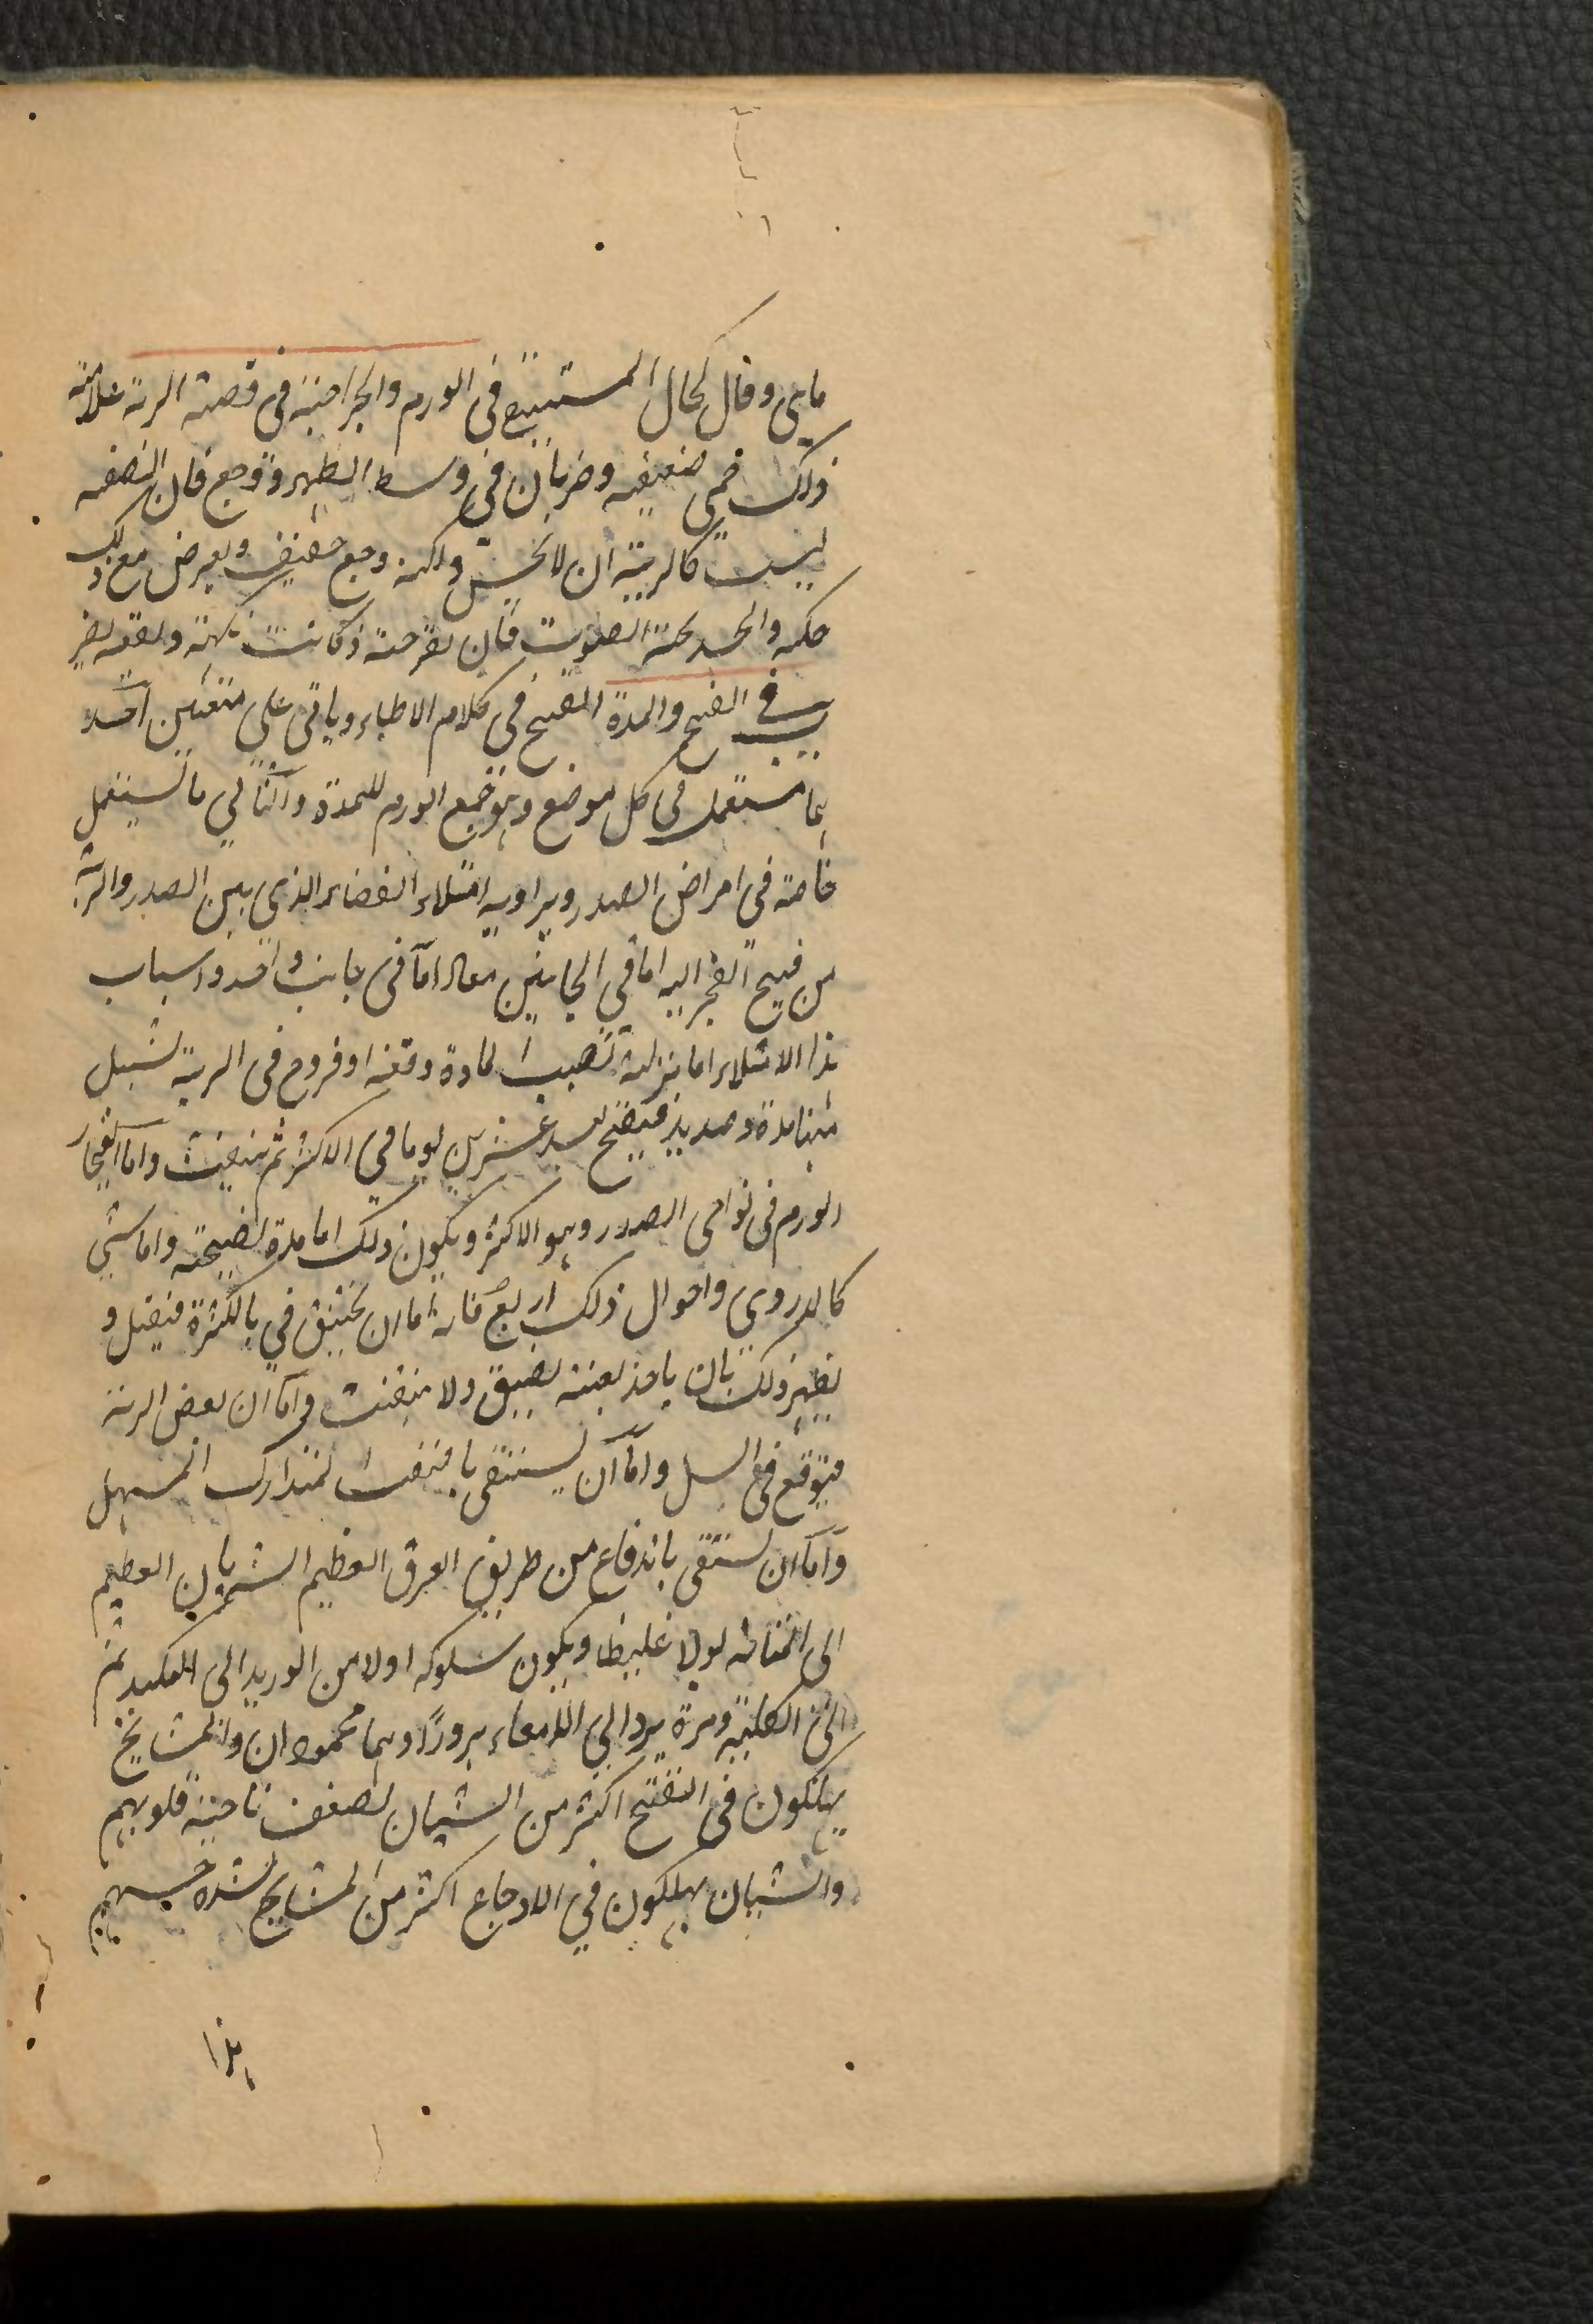 ماهی وقال کحال المستبیع فی الورم والجراحیة فی قصبة الریة علامته
ذلک حمی ضعیفه وضربان فی وسط الظهر ووجع فان القصبه
لیست کالریة ان لا یحس ولکنه وجع خفیف ویعرض مع ذلک
حکه والجسد بحة الصوت فان تقرحت کانت نکهته
فی القیح والمدة القیح فی کلام الاطباء ویاتی علی معنیین احد
هما مستعمل فی کل موضع وهو جمع الورم للمدة والثانی ما یستعمل
خاصة فی امراض الصدر ویراد به امتلاء الفضاء الذی بین الصدر والریة
من قیح انفجر الیه اما فی الجانبین معا واما فی جانب واحد واسباب
هذا الامتلاء اما نزلة تصیب المادة دفعة او قروح فی الریة تسیل
منها مدة وصدید فیقیح بعد عشرین یوما فی الاکثر ثم ینفث واما انفجار
الورم فی نواحی الصدر وهو الاکثر ویکون ذلک اما مدة نضیجة واما شی
کالدردی واحوال ذلک اربع فانه اما ان یختنق فی بالکثرة فیقتل و
یظهر ذلک بان یاخذ نفسه یضیق ولا ینفث واما ان یعفن الریة
فیوقع فی السل واما ان یستنقی بالنفث المتدارک السهل
واما ان یستنقی باندفاع من طریق العرق العظیم الشریان العظیم
الی المثانه بولا غلیظا ویکون سلوکه اولا من الورید الی الکبد ثم
الی الکلیة ومرة یرد الی الامعاء برورا وهما محمودان والمشایخ
یهلکون فی التقیح اکثر من الشبان لضعف ناحیة قلوبهم
والشبان یهلکون فی الاوجاع اکثر من المشایخ لشدة حسهم
هذا